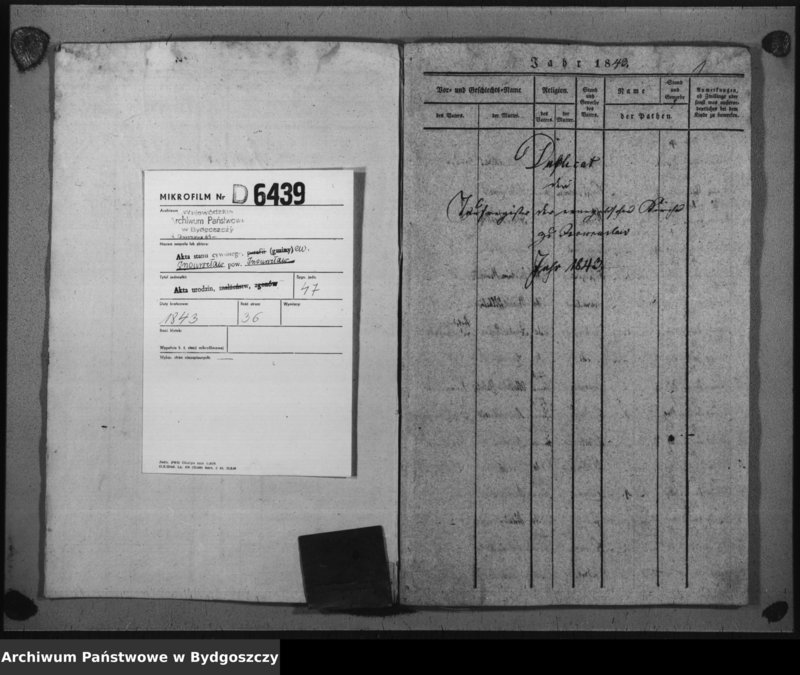 MIKROFILM Nr D 6439
Archiwum
Archiwum Państwowe
w Bydgoszczy
Nazwa zespołu lub zbioru:
Akta stanu cywilnego, parafii (gminy) ew.
Inowrocław pow. Inowrocław
Tytuł jednostki:
Akta urodzin, małżeństw, zgonów
Sygn. jedn.
47
Daty krańcowe:
1843
Ilość stron:
36
Wymiary:
Ilość klatek:
Wypełnia B. z. służb mikrofilmowej
Wykaz stron nieczytelnych:
Jahr 1843.
1
Vor- und Geschlechts-Name
des Vaters.
der Mutter.
Religion.
des Vaters.
der Mutter.
Stand und Gewerbe des Vaters.
Name
Stand und Gewerbe
der Pathen.
Anmerkungen,
ob Zwillinge oder
sonst was außeror-
dentliches bei dem
Kinde zu bemerken.
Duplicat
des
Taufregisters der evangelischen Kirche
zu Inowraclaw
Jahr 1843
Archiwum Państwowe w Bydgoszczy